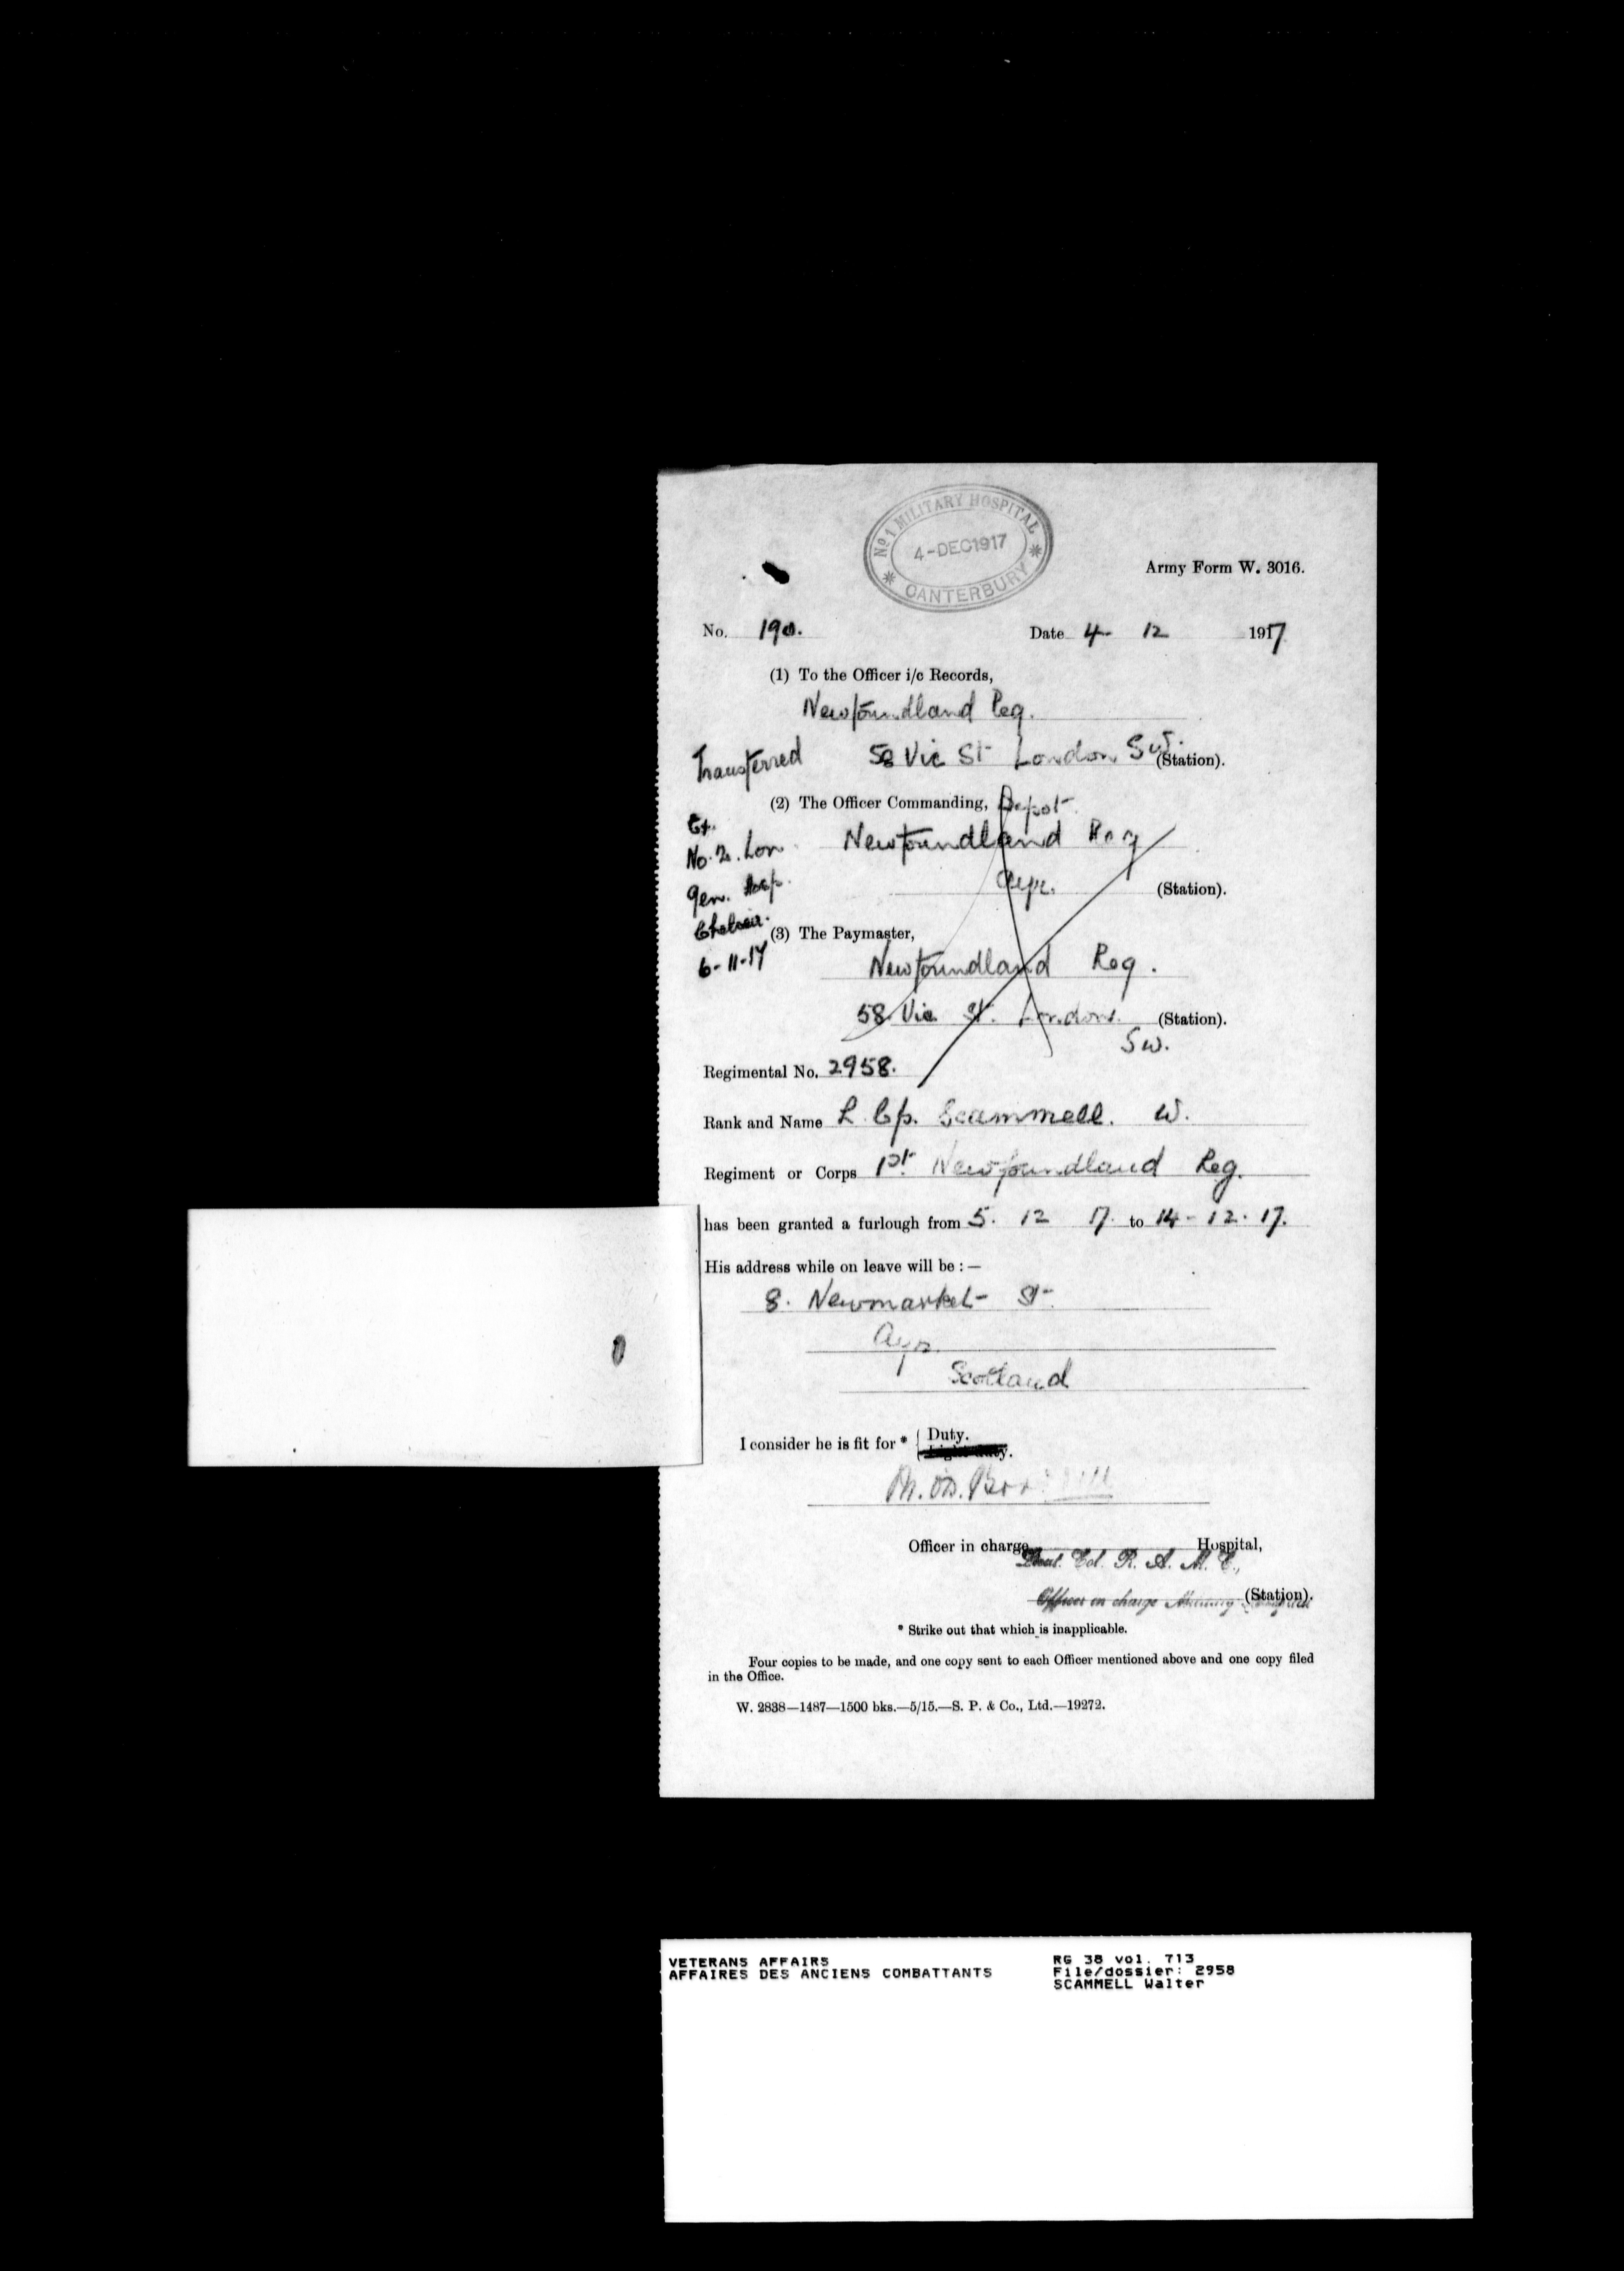 No 1 MILITARY HOSPITAL
4-DEC 1917
CANTERBURY
Army Form W. 3016.
No. 190. Date 4- 12 1917
(1) To the Officer i/c Records,
Newfoundland Reg.
58 Vic St London SW. (Station).
Transferred
(2) The Officer Commanding, Depot
Newfoundland Reg
Ayr. (Station).
No. 2. Lon
Gen. Hosp.
Chelsea.
6-11-17
(3) The Paymaster,
Newfoundland Reg.
58 Vic St. London. (Station).
SW.
Regimental No. 2958.
Rank and Name L Cp. Scammell. W.
Regiment or Corps 1st Newfoundland Reg.
has been granted a furlough from 5. 12 17. to 14-12.17.
His address while on leave will be :—
8. Newmarket St.
Ayr.
Scotland
I consider he is fit for * Duty.
Light duty.
Officer in charge Hospital,
Lieut. Col. R. A. M. C.,
Officer in charge Military Hospital (Station).
* Strike out that which is inapplicable.
Four copies to be made, and one copy sent to each Officer mentioned above and one copy filed
in the Office.
W. 2838—1487—1500 bks.—5/15.—S. P. & Co., Ltd.—19272.
VETERANS AFFAIRS RG 38 vol. 713
AFFAIRES DES ANCIENS COMBATTANTS File/dossier: 2958
SCAMMELL Walter